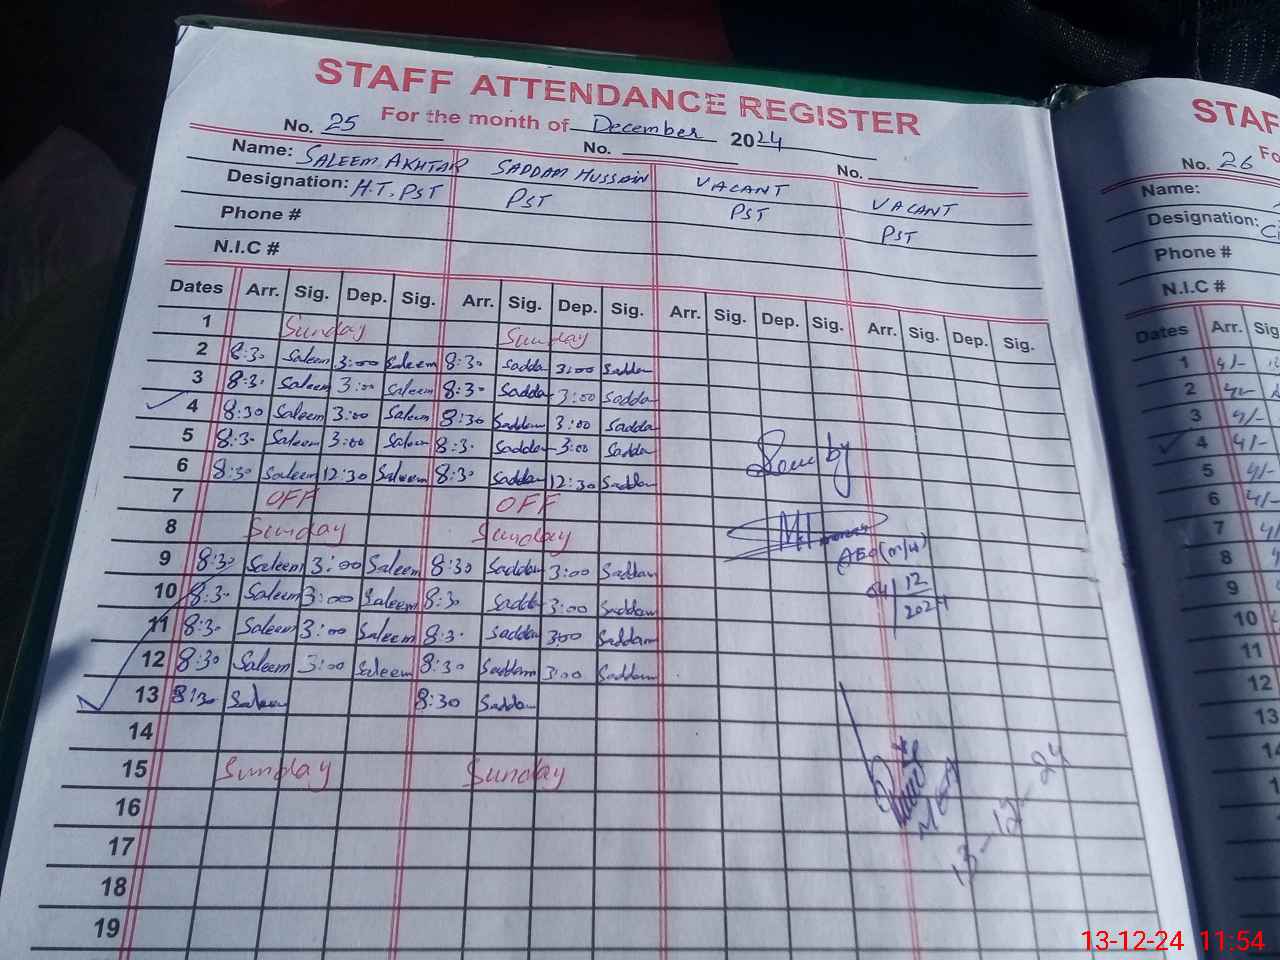 STAFF ATTENDANCE REGISTER
For the month of December 2024
No. 25 No. No.
Name: SALEEM AKHTAR SADDAM HUSSAIN VACANT VACANT
Designation: H.T, PST PST PST PST
Phone #
N.I.C #
Dates Arr. Sig. Dep. Sig. Arr. Sig. Dep. Sig. Arr. Sig. Dep. Sig. Arr. Sig. Dep. Sig.
1 Sunday Sunday
2 8:30 Saleem 3:00 Saleem 8:30 Sadda 3:00 Saddam
3 8:30 Saleem 3:00 Saleem 8:30 Sadda 3:00 Sadda
4 8:30 Saleem 3:00 Saleem 8:30 Saddam 3:00 Sadda
5 8:30 Saleem 3:00 Saleem 8:30 Sadda 3:00 Sadda
6 8:30 Saleem 12:30 Saleem 8:30 Saddam 12:30 Saddam
7 OFF OFF
8 Sunday Sunday
9 8:30 Saleem 3:00 Saleem 8:30 Saddam 3:00 Saddam
10 8:30 Saleem 3:00 Saleem 8:30 Sadda 3:00 Saddam
11 8:30 Saleem 3:00 Saleem 8:30 Sadda 3:00 Saddam
12 8:30 Saleem 3:00 Saleem 8:30 Saddam 3:00 Saddam
13 8:30 Saleem 8:30 Saddam
14
15 Sunday Sunday
16
17
18
19
Seen by
AEO (M/W)
04/12/2024
MEA
13-12-24
STAF
Fo
No. 26
Name:
Designation:
Phone #
N.I.C #
Dates Arr. Sig
1 4/-
2 4/-
3 4/-
4 4/-
5 4/-
6 4/-
7
8
9
10
11
12
13
13-12-24 11:54